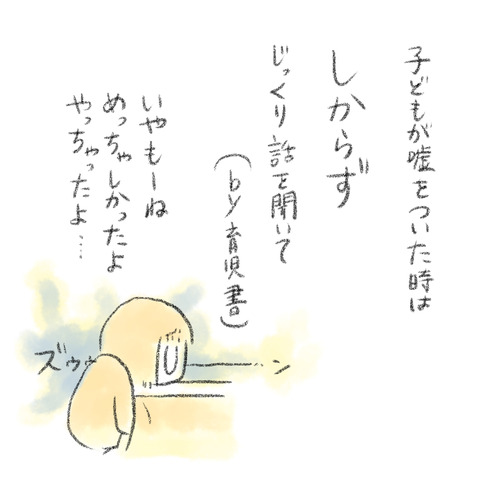 子どもが嘘をついた時は
しからず
じっくり話を聞いて
（by育児書）
いやもーね
めっちゃしかったよ
やっちゃったよ…
ズゥゥーーン